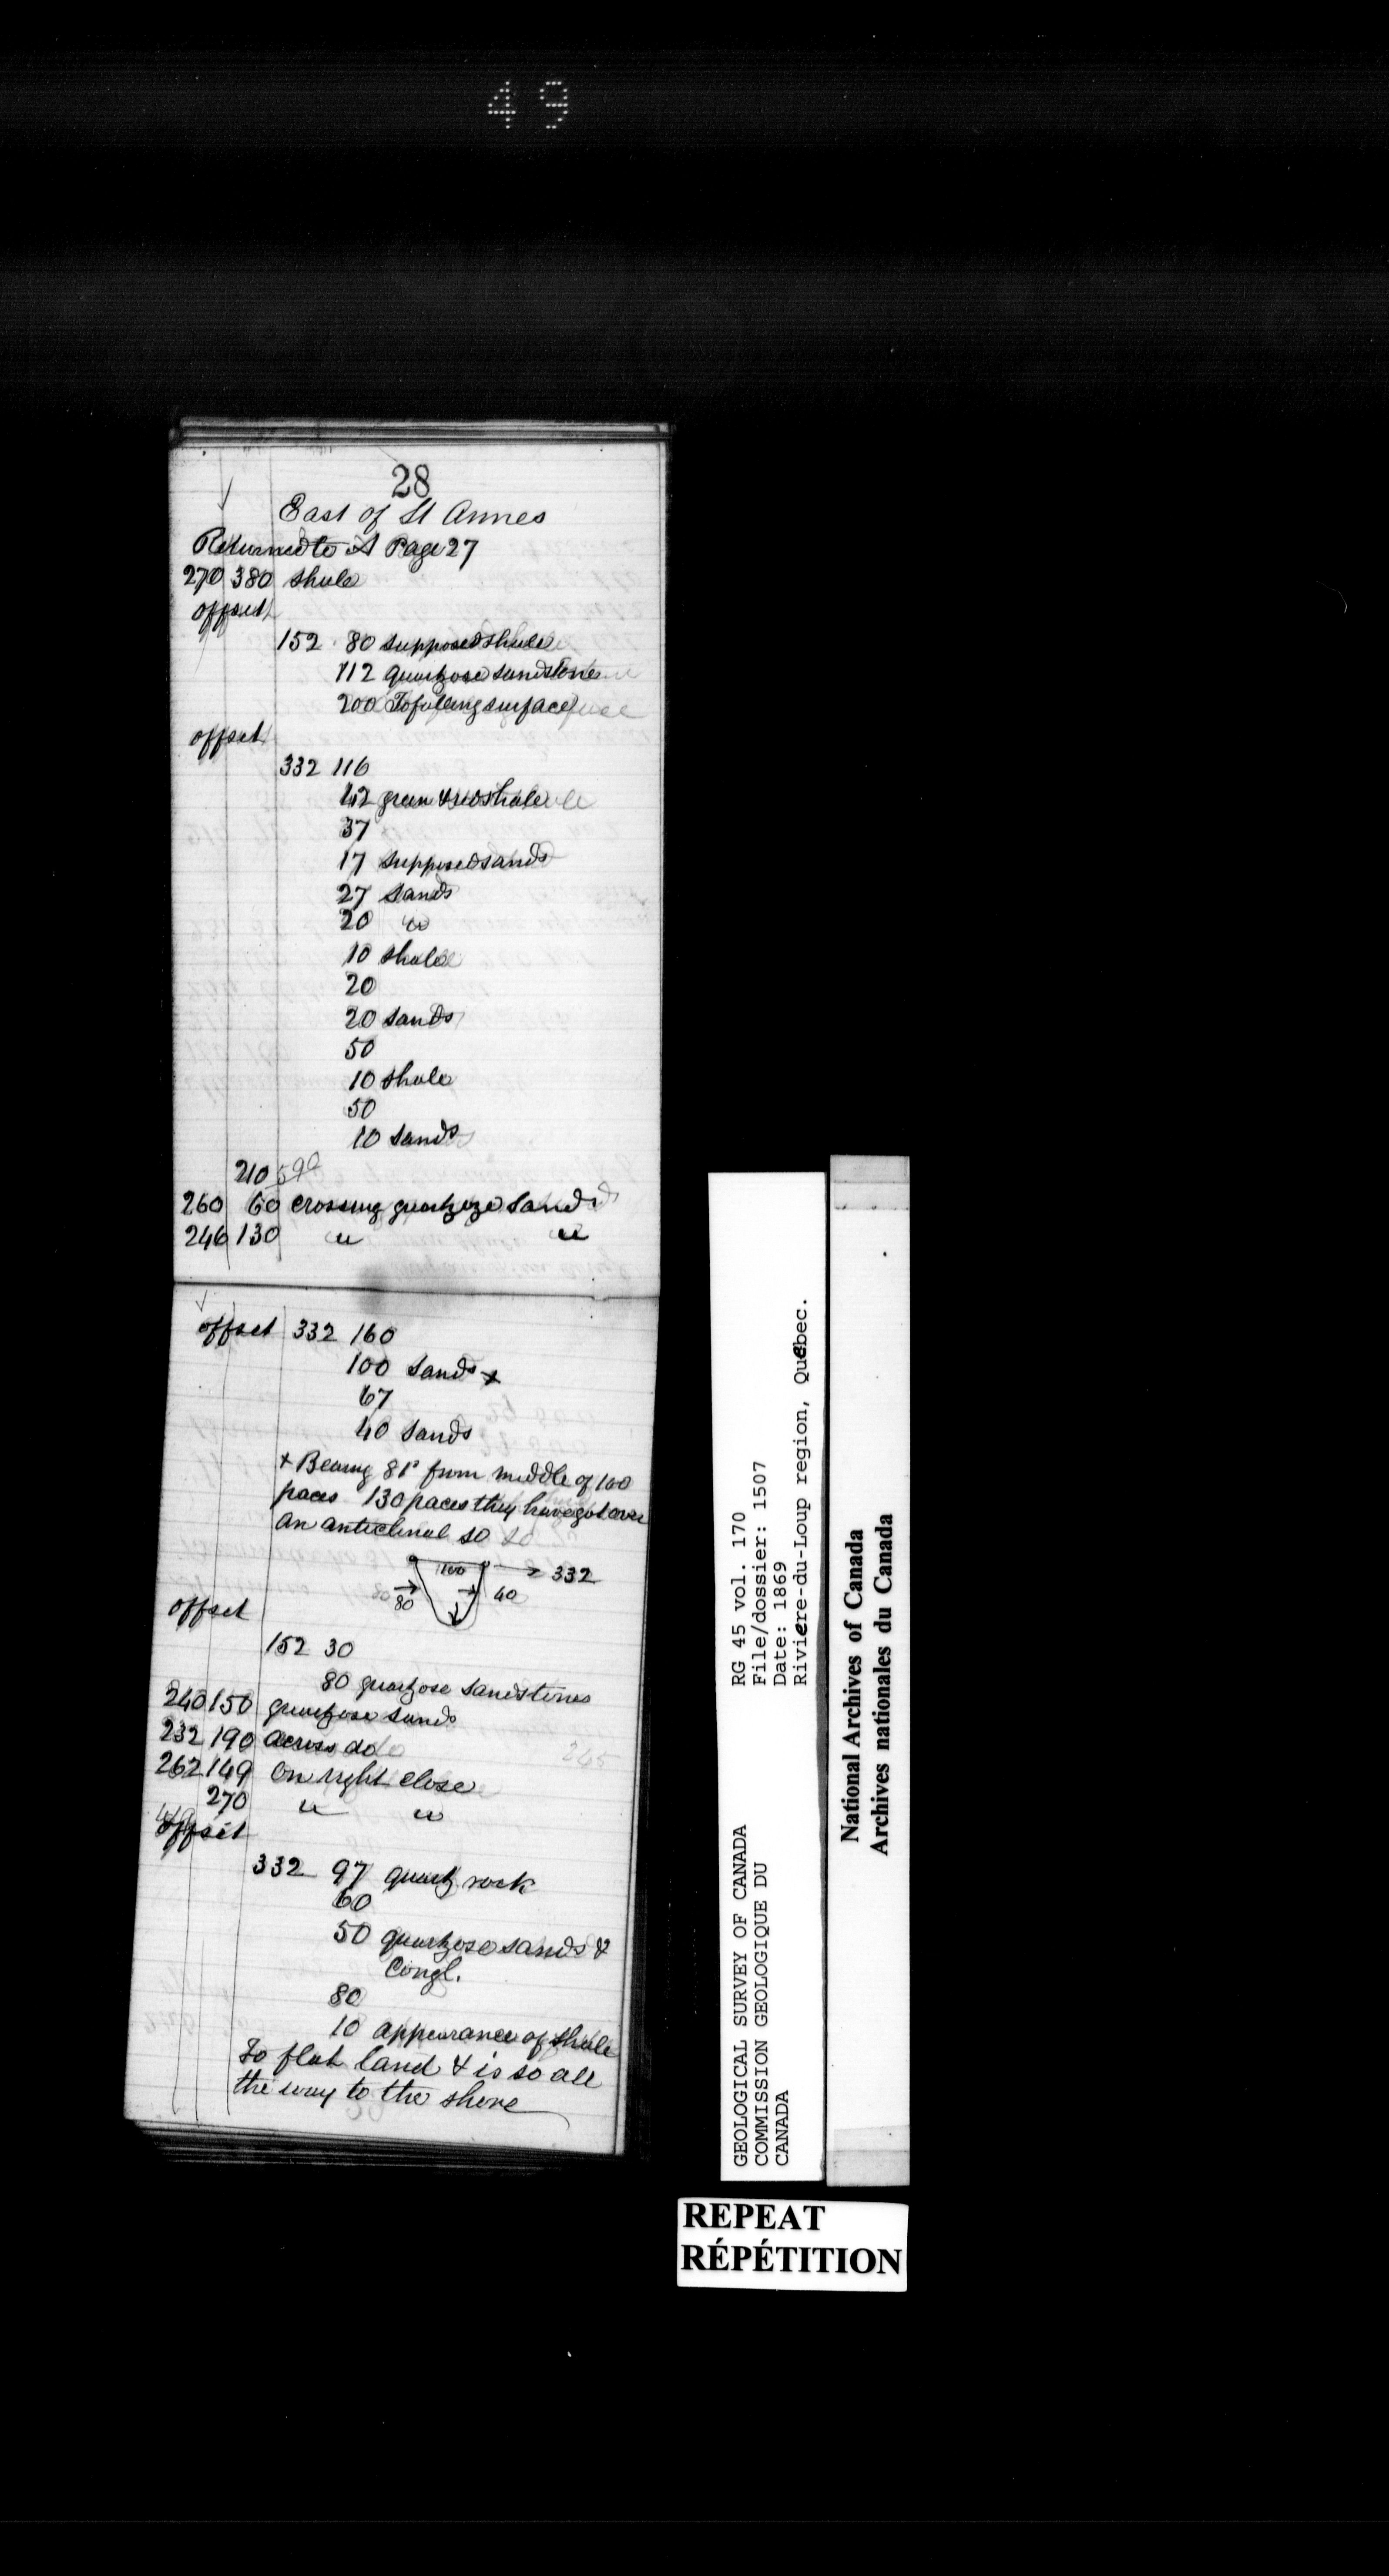 49
28
East of St Annes
Returned to A Page 27
270 380 shale
offset
152 80 supposed shale
112 quartzose sandstone
200 To falling surface
offset
332 116
42 green & red shale
37
17 supposed sands
27 sands
20 "
10 shale
20
20 sands
50
10 shale
50
10 sands
210 590
260 60 crossing quartzoze sands
246 130 " "
offset 332 160
100 sands x
67
40 sands
x Bearing 81° from middle of 100
paces 130 paces they have got over
an anticlinal so
100 332
80 80 40
offset
152 30
80 quartzose sandstones
240 150 quartzose sands
232 190 across do
262 149 On right close
245
270 " "
offset
332 97 quartz rock
60
50 quartzose sands &
Congl.
80
10 appearance of shale
To flat land & is so all
the way to the shore
GEOLOGICAL SURVEY OF CANADA
COMMISSION GEOLOGIQUE DU
CANADA
RG 45 vol. 170
File/dossier: 1507
Date: 1869
Riviere-du-Loup region, Quebec.
National Archives of Canada
Archives nationales du Canada
REPEAT
RÉPÉTITION